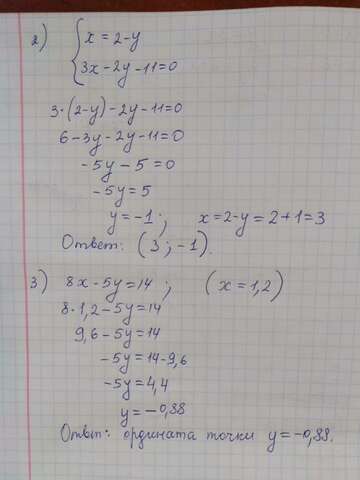 2) { x = 2-y
3x-2y-11=0
3·(2-y)-2y-11=0
6-3y-2y-11=0
-5y-5=0
-5y=5
y=-1; x=2-y=2+1=3
Ответ: (3; -1).
3) 8x-5y=14; (x=1,2)
8·1,2-5y=14
9,6-5y=14
-5y=14-9,6
-5y=4,4
y=-0,88
Ответ: ордината точки y=-0,88.